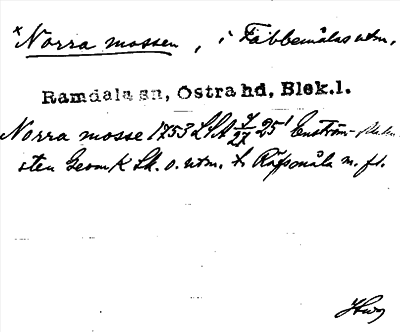 × Norra mossen, i Fäbbemålas utm.
Ramdala sn, Östra hd, Blek.l.
Norra mosse 1753 LSA 25
sten Geom K Sk. o. utm. t. Räfsmåla m. fl.